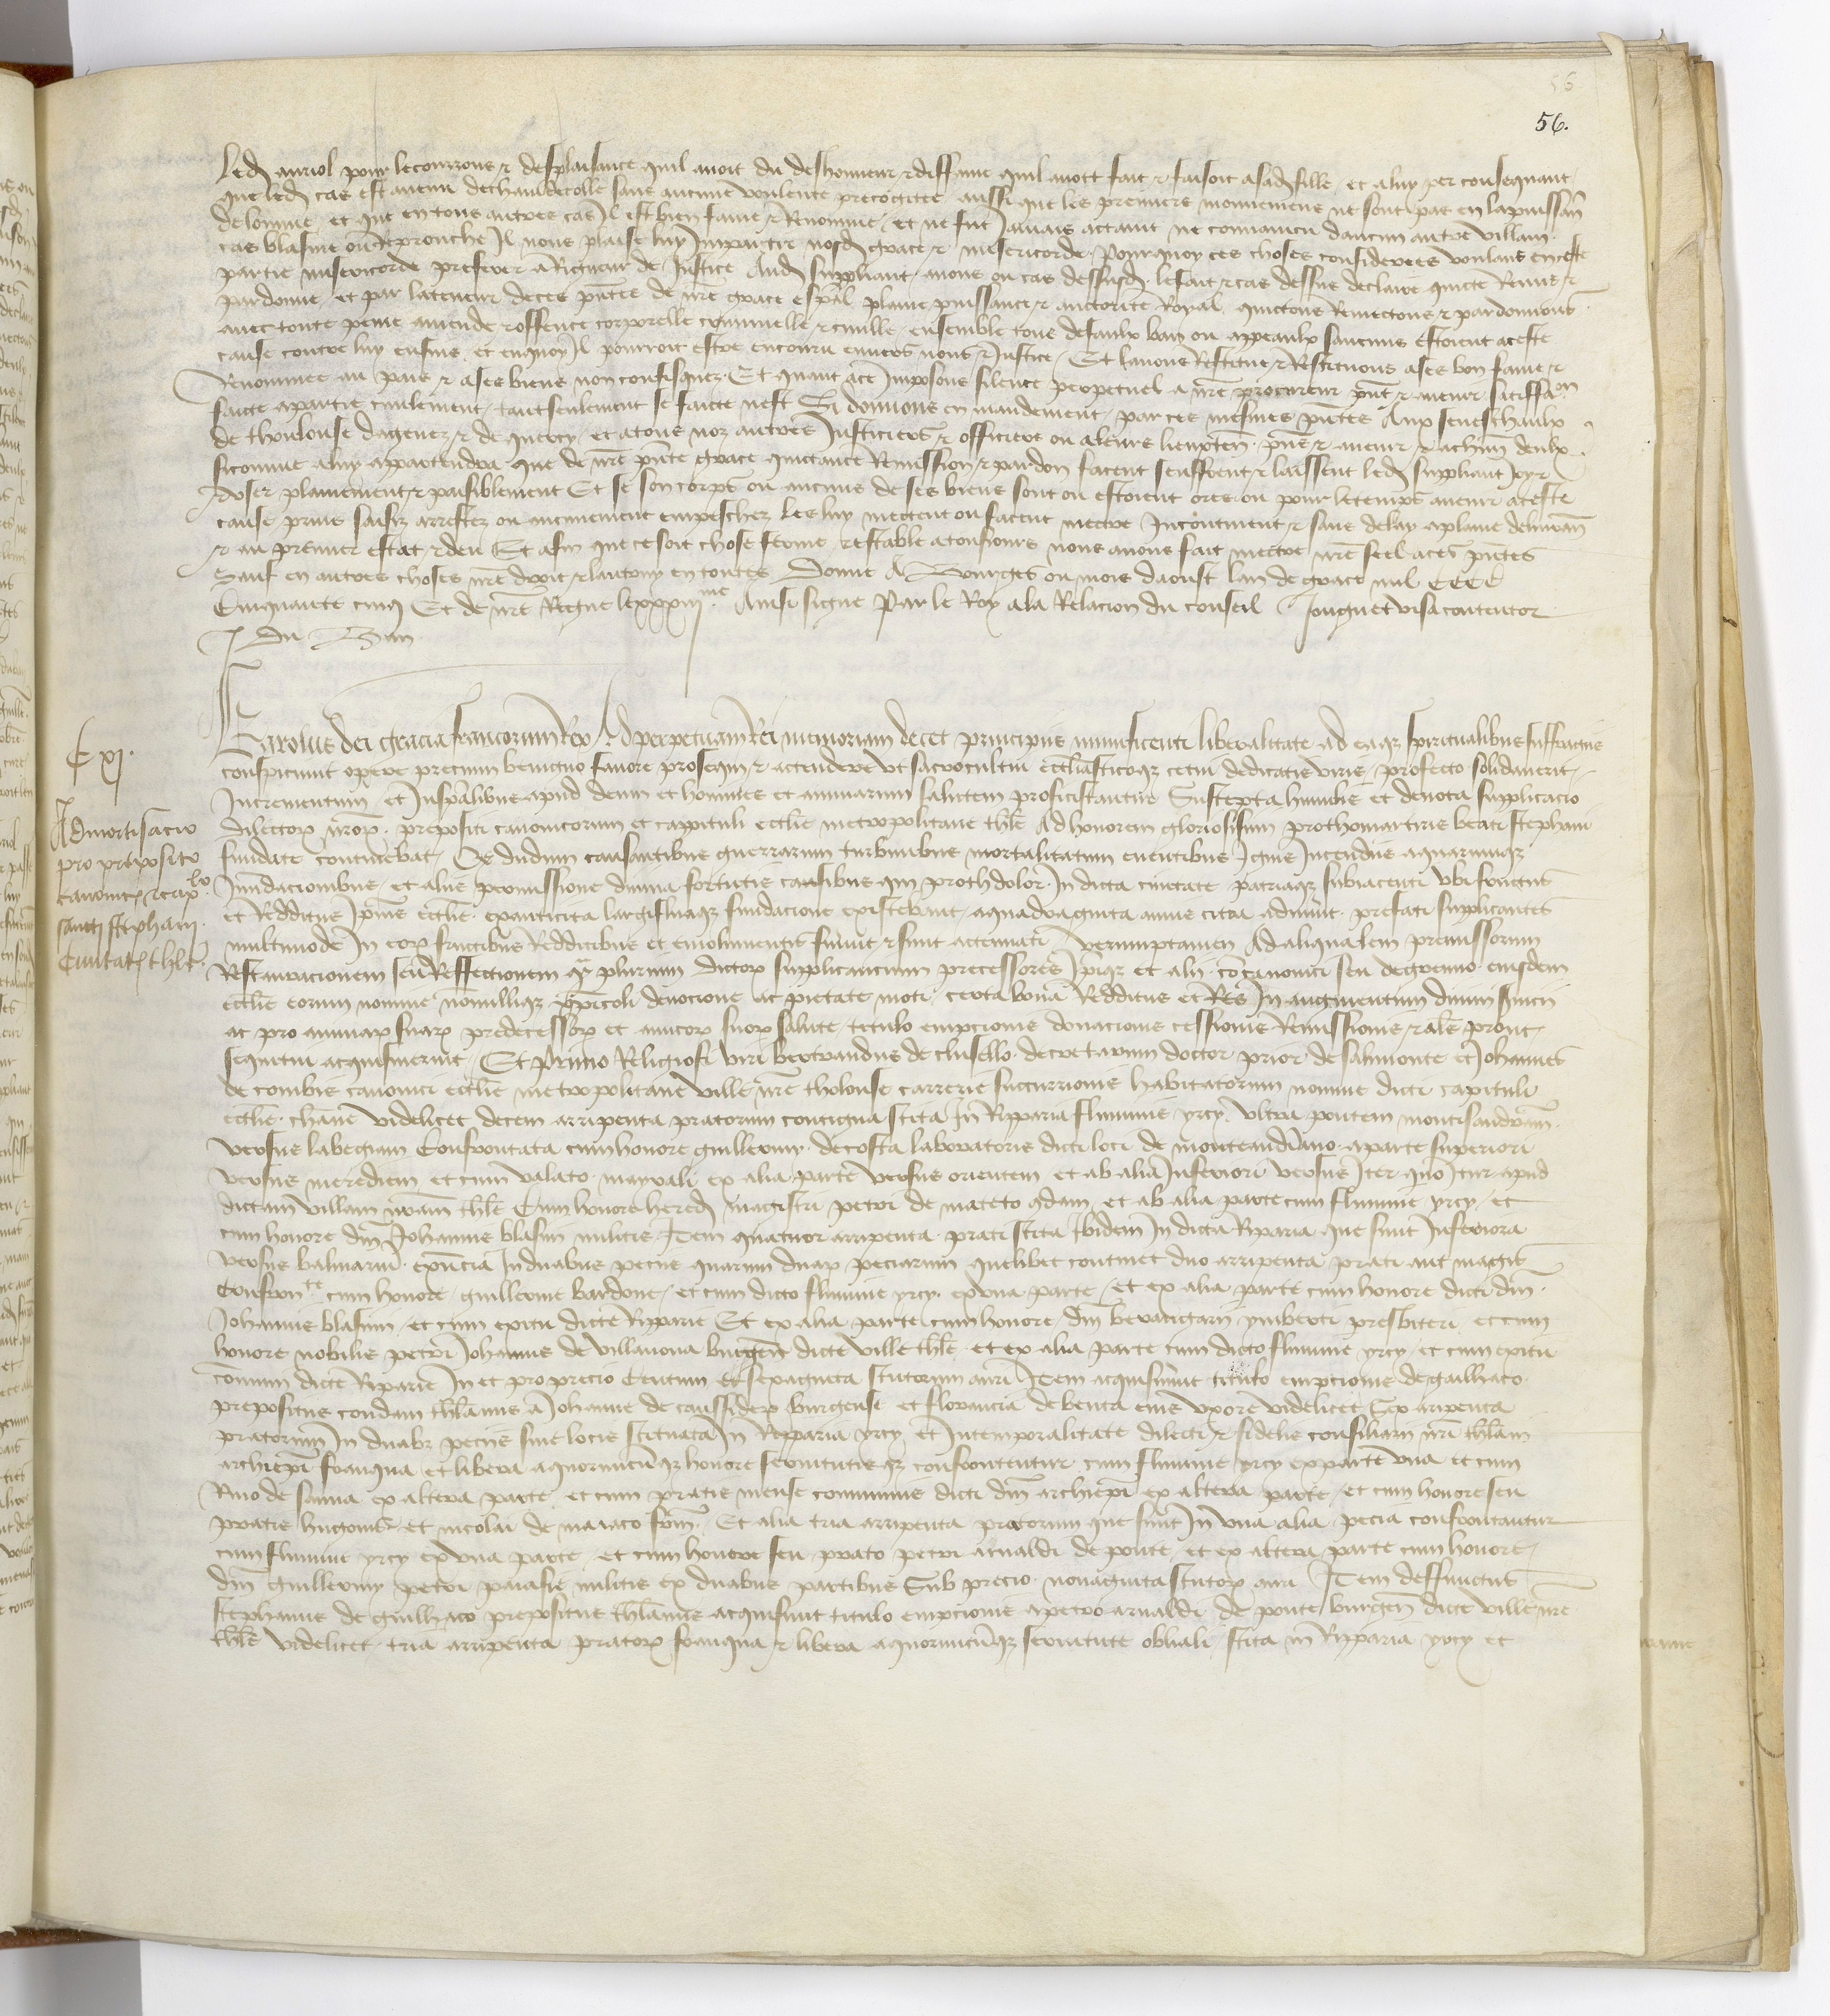 56
56.
Led auriol pour le courrous & desplaisance quil avoit du deshonneur & diffame quil avoit fait & faisoit a sad fille et a luy per consequant
que led cas est avenu de chaudecolle sans aucune voulente precogitee aussi que les premiers mouvemens ne sont pas en la puissan
de lomme et que en tous autres cas Il est bien fame & Renomme et ne fut Jamais actaint ne convaincu daucun autre villain
cas blasme ou Reprouche Il nous plaise luy Impartir nosd grace & misericorde Pourquoy ces choses considerees voulans en ceste
partie misericorde preferer a Rigueur de Justice Aud suppliant avons ou cas dessusd le fait & cas dessus declaire quicte Remis &
pardonne et par la teneur de ces pntes de nre grace espal plaine puissance & auctorite Royal quictons Remectons & pardonnons
avec toute peine amende & offence corporelle criminelle & civille ensemble tous defaulx ban ou appeaulx saucuns estoient a ceste
cause contre luy ensuis et en quoy Il pourroit estre encouru envers nous & Justice Et lavons Restitue & Restituons a ses bon fame &
Renommee au pais & a ses biens non confisquez Et quant a ce Imposons silence perpetuel a nre procureur pnt & avenir satisffaon
faicte a partie civilement tant seulement se faicte nest Si donnons en mandement par ces mesmes pntes Aux seneschaulx
de thoulouse dagenez & de quercy et a tous noz autres Justiciers & officiers ou a leurs lieuxten pns & avenir & a chun deulx
si comme a luy appartendra que de nre pnte grace quictance Remission & pardon facent seuffrent & laissent led suppliant Joyr
& user plainement & paisiblement Et se son corps ou aucuns de ses biens sont ou estoient ores ou pour le temps avenir a ceste
cause prins saisiz arrestez ou aucunement empeschez les luy mectent ou facent mectre Incontinent & sans delay a plaine delivran
& au premier estat & deu Et afin que ce soit chose ferme & estable a tousjours nous avons fait mectre nre seel a ces pntes
Sauf en autres choses nre droit & lautruy en toutes Donne A Bourges ou mois daoust lan de grace mil CCCC
Cinquante cinq Et de nre Regne le xxxiii me Ainsi signe Par le Roy a la Relacion du conseil Jouguet visa contentor
J du Ban
C xj.
Admortisacio
pro preposito
canonicis & caplo
sancti stephani
Civitatis thle
Karolus dei gracia francorum Rex Ad perpetuam Rei memoriam decet principis munificenti liberalitate ad ea que spiritualibus suffragiis
conspiciunt opere precium benigno favore prosequi & actendere ut sacrocultui ecclasticoque cetui dedicatis viris profecto solidaverit
Incrementum et Inspalibus apud deum et homines et animarum salutem proficiscantur Suscepta humile et devota supplicacio
dilectorum nrorum prepositi canonicorum et cappituli ecclie metropolitane thle Ad honorem gloriosisimi prothomartiris beati stephani
fundate continebat Qd dudum causantibus guerrarum turbinibus mortalitatum eventibus Igniis Incendiis aquarumque
Inundacionibus et aliis permissione divina fortuitis casibus qui prothdolor In dicta civitate patriaque subiacenti ubi fructus
et Redditus Ipius ecclie ex anticita largifluaque fundacione existebant a quadraginta annis citra advenit prefati supplicantes
multimode In eorum fructibus Redditibus et emolimentis fuerunt & sunt actenuati Verumptamen Ad aliqualem premissorum
Restauracionem seu Reffectionem plurimi dictorum supplicancium precessores Ipique et alij concanonici seu de gremio eiusdem
ecclie eorum nomine nonnullique xpicoli devocione ac pietate moti certa bona Redditus et Res In augmentum divini servicii
ac pro animarum suarum predecessorum et amicorum suorum salute titulo empcionis donacionis cessionis Remissionis & als prout
sequitur acquisiverunt Et Primo Religiosi viri bertrandus de clusello decretarum doctor prior de salmonte et Johannes
de combis canonici ecclie metropolitane ville nre tholose carrerie succurrionis habitatorum nomine dicti capituli
ecclie videlicet decem arripenta pratorum contigua scita In Ripparia fluminis yrcy ultra pontem montisaudran
versus labegiam Confrontata cum honore guillermi de costa laboratoris dicti loci de monteaudrano a parte superiori
versus meridiem et cum valato mayrali ex alia parte versus orientem et ab alia Inferiori versus Iter quo Itur apud
dictam villam nram thle Cum honore hered magistri petri de mateto qdam et ab alia parte cum flumine yrcy et
cum honore dni Johannis blasini militis Item quatuor arripenta prati scita Ibidem In dicta Riparia que sunt Inferiora
versus balmariu exncia In duabus peciis quarum duarum peciarum quelibet continet duo arripenta prati aut magis
Confronte cum honore guillermi bardone et cum dicto flumine yrcy ex una parte et ex alia parte cum honore dicti dni
Johannis blasini et cum exitu dicte Ripparie Et ex alia parte cum honore dni berengarii ymberti presbiteri et cum
honore nobilis petri Johannis de villanova burgen dicte ville thle et ex alia parte cum dicto flumine yrcy et cum exitu
comuni dicte Riparie In et pro precio Centum & sexaginta scutorum auri Item acquisivit titulo empcionis de gailhaco
prepositus condam thlanus a Johanne de caussidera burgense et florancia de benca eius uxore videlicet Sex aripenta
pratorum In duabus peciis sive locis scituata In Ripparia yrcy et In temporalitate dilecti & fidelis consiliarii nri thlani
archiepi franqua et libera a quorumcumque honore servitutisque confrontentur cum flumine yrcy ex parte una et cum
Rivo de sauna ex altera parte et cum pratis mense communis dicti dni archiepi ex altera parte et cum honore seu
pratis hugonis et nicolai de maiaco frum Et alia tria arripenta pratorum que sunt In una alia pecia confrontantur
cum flumine yrcy ex una parte et cum honore seu prato petri arnaldi de ponte et ex altera parte cum honore
dni guillermi petri paiasie militis ex duabus partibus Sub precio nonaginta scutorum auri Item deffunctus
stephanus de guilhaco prepositus thlanus acquisivit titulo empcionis a petro arnaldi de ponte burgen dicte ville nre
thle videlicet tria arripenta pratorum franqua & libera a quorumcumque servitute obliali scita in Ripparia yrcy et